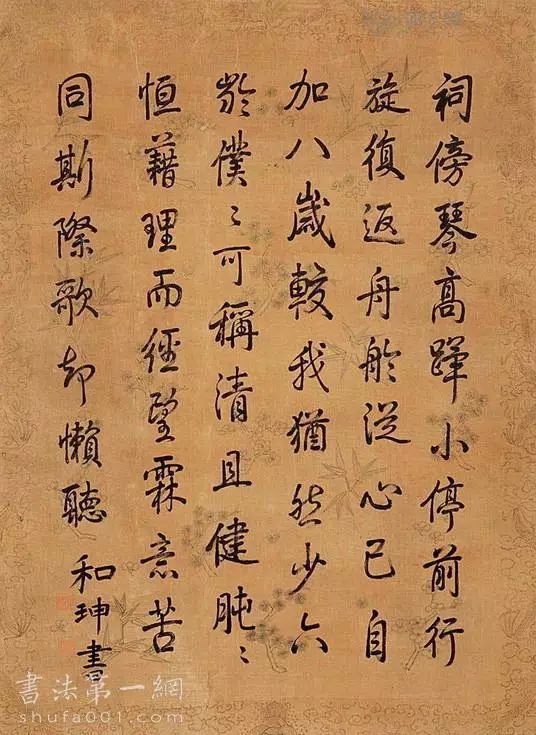 祠傍琴高蹕小停前行
旋復返舟舲從心已自
加八歲較我猶然少六
齡僕〻可稱清且健肫〻
恒藉理而經望霖意苦
同斯際歌却懶聽
和珅書
書法第一網
shufa001.com